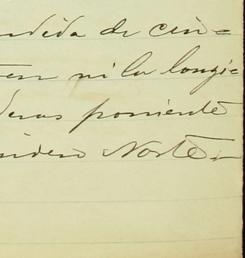 ndida de cin=
ten ni la longi=
deras poniente
inden Norte.-